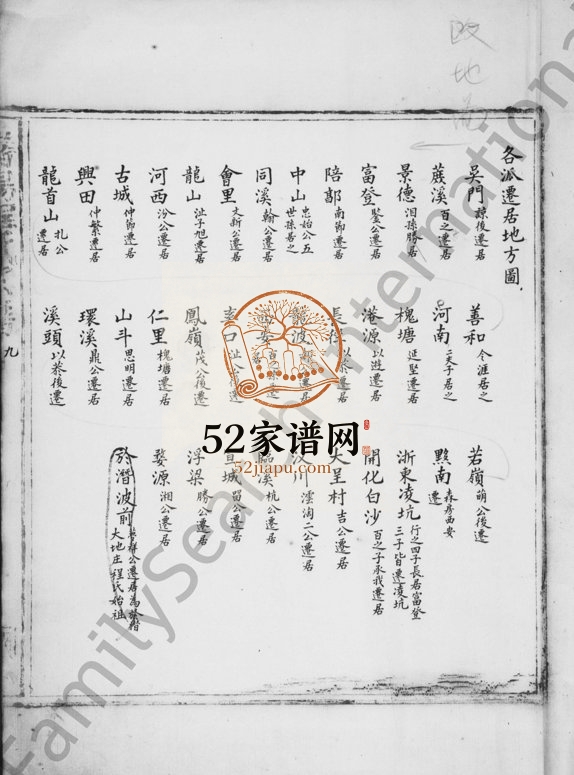 各派遷居地方圖
吳門 諒後遷居
蕀溪 百之遷居
景德 洎孫勝居
富登 鋻公遷居
陪郭 南節遷居
中山 忠始公五世孫居之
同溪 翰公遷居
會里 文新公遷居
龍山 沚子旭遷居
河西 汾公遷居
古城 仲節遷居
興田 仲繁遷居
龍首山 扎公遷居
善和 令洭居之
河南 二夫子居之
槐塘 延堅遷居
港源 以遊遷居
長
龍波
口 沚公後遷
鳳嶺 茂公後遷
仁里 槐塘遷居
山斗 思明遷居
環溪 鼎公遷居
溪頭 以菸後遷
若嶺 萌公後遷
黟南 森彥西安遷
浙東凌坑 行之四子長居富登三子皆遷凌坑
開化白沙 百之子永我遷居
大呈村 吉公遷居
汊川 澐洵二公遷居
臨溪 杭公遷居
宣城 習公遷居
浮梁 勝公遷居
婺源 湘公遷居
於潛波前 公遷居為於潛大地庄程氏始祖
九
52家谱网
52jiapu.com
FamilySearch International